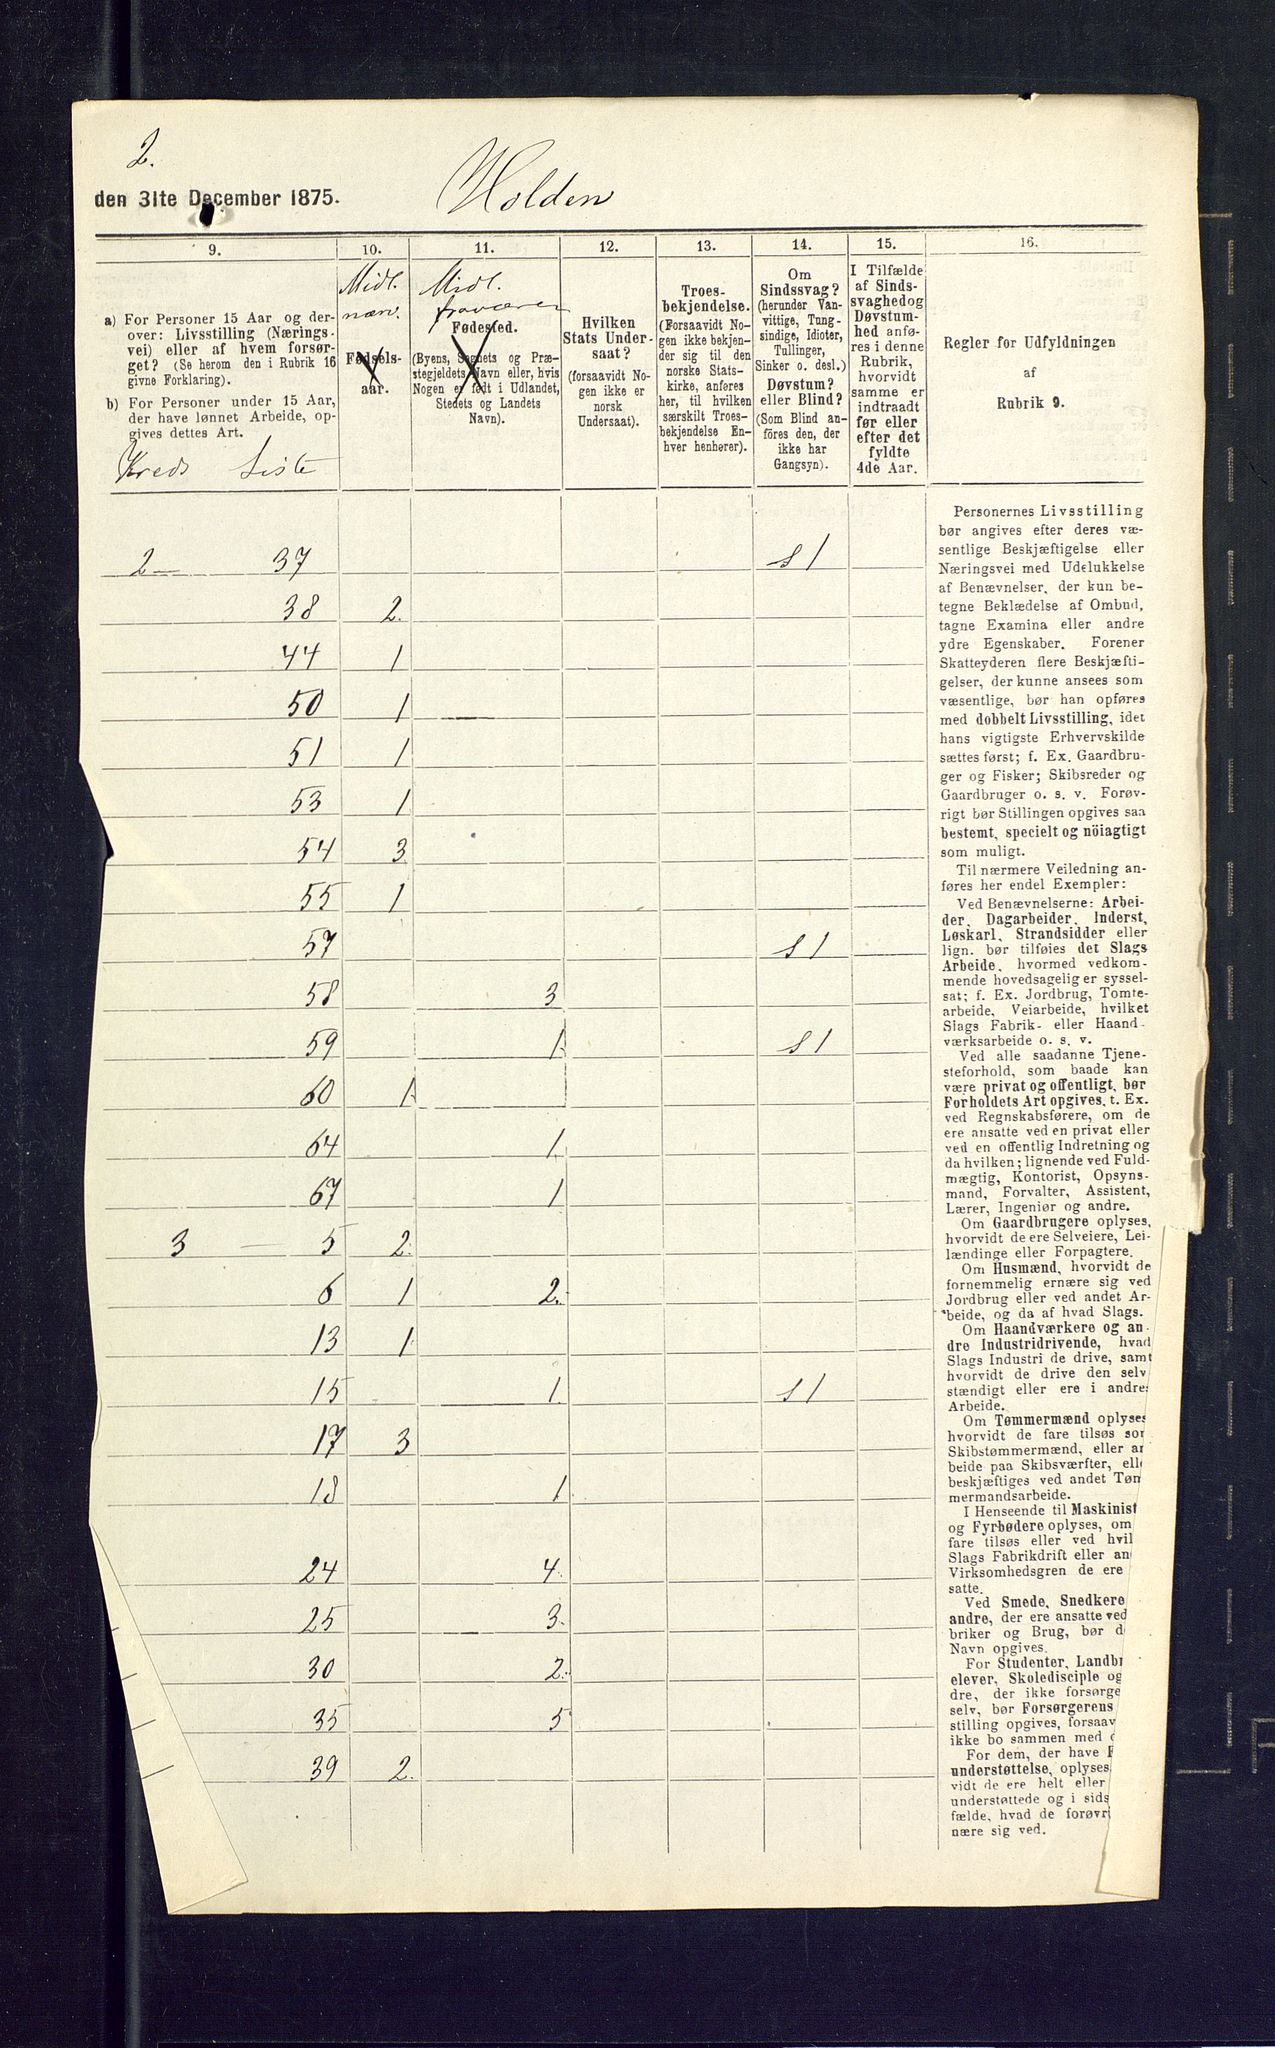 2.
den 31te December 1875.
Holden
9. 10. 11. 12. 13. 14. 15. 16.
a) For Personer 15 Aar og der-
over: Livsstilling (Nærings-
vei) eller af hvem forsør-
get? (Se herom den i Rubrik 16
givne Forklaring).
b) For Personer under 15 Aar,
der have lønnet Arbeide, op-
gives dettes Art.
Kreds Liste
Midl.
nærv.
Fødsels-
aar.
Midl.
fraværen
Fødested.
(Byens, Sognets og Præ-
stegjeldets Navn eller, hvis
Nogen er født i Udlandet,
Stedets og Landets
Navn).
Hvilken
Stats Under-
saat?
(forsaavidt No-
gen ikke er
norsk
Undersaat).
Troes-
bekjendelse.
(Forsaavidt No-
gen ikke bekjen-
der sig til den
norske Stats-
kirke, anføres
her, til hvilken
særskilt Troes-
bekjendelse En-
hver henhører).
Om
Sindssvag?
(herunder Van-
vittige, Tung-
sindige, Idioter,
Tullinger,
Sinker o. desl.)
Døvstum?
eller Blind?
(Som Blind an-
föres den, der
ikke har
Gangsyn).
I Tilfælde
af Sinds-
svaghedog
Døvstum-
hed anfø-
res i denne
Rubrik,
hvorvidt
samme er
indtraadt
før eller
efter det
fyldte
4de Aar.
Regler for Udfyldningen
af
Rubrik 9.
2 — 37 S 1
38 2.
44 1
50 1
51 1
53 1
54 3
55 1
57 S 1
58 3
59 1 S 1
60 1
64 1
67 1
3 — 5 2.
6 1 2.
13 1
15 1 S 1
17 3
18 1
24 4
25 3
30 2
35 5
39 2.
Personernes Livsstilling
bør angives efter deres væ-
sentlige Beskjæftigelse eller
Næringsvei med Udelukkelse
af Benævnelser, der kun be-
tegne Beklædelse af Ombud,
tagne Examina eller andre
ydre Egenskaber. Forener
Skatteyderen flere Beskjæfti-
gelser, der kunne ansees som
væsentlige, bør han opføres
med dobbelt Livsstilling, idet
hans vigtigste Erhvervskilde
sættes først; f. Ex. Gaardbru-
ger og Fisker; Skibsreder og
Gaardbruger o. s. v. Forøv-
rigt bør Stillingen opgives saa
bestemt, specielt og nöiagtigt
som muligt.
Til nærmere Veiledning an-
føres her endel Exempler:
Ved Benævnelserne: Arbei-
der, Dagarbeider, Inderst,
Løskarl, Strandsidder eller
lign. bør tilføies det Slags
Arbeide, hvormed vedkom-
mende hovedsagelig er syssel-
sat; f. Ex. Jordbrug, Tomte-
arbeide, Veiarbeide, hvilket
Slags Fabrik- eller Haand-
værksarbeide o. s. v.
Ved alle saadanne Tjene-
steforhold, som baade kan
være privat og offentligt, bør
Forholdets Art opgives, t. Ex.
ved Regnskabsførere, om de
ere ansatte ved en privat eller
ved en offentlig Indretning og
da hvilken; lignende ved Fuld-
mægtig, Kontorist, Opsyns-
mand, Forvalter, Assistent,
Lærer, Ingeniør og andre.
Om Gaardbrugere oplyses,
hvorvidt de ere Selveiere, Lei-
lændinge eller Forpagtere.
Om Husmænd, hvorvidt de
fornemmelig ernære sig ved
Jordbrug eller ved andet Ar-
beide, og da af hvad Slags.
Om Haandværkere og an-
dre Industridrivende, hvad
Slags Industri de drive, samt
hvorvidt de drive den selv-
stændigt eller ere i andres
Arbeide.
Om Tømmermænd oplyses
hvorvidt de fare tilsøs som
Skibstømmermænd, eller ar
beide paa Skibsværfter, elle
beskjæftiges ved andet Tøm
mermandsarbeide.
I Henseende til Maskinist
og Fyrbødere oplyses, om
fare tilsøs eller ved hvil
Slags Fabrikdrift eller an
Virksomhedsgren de ere
satte.
Ved Smede, Snedkere
andre, der ere ansatte ved
briker og Brug, bør d
Navn opgives.
For Studenter, Landb
elever, Skoledisciple og
dre, der ikke forsørge
selv, bør Forsørgerens
stilling opgives, forsaav
ikke bo sammen med
For dem, der have F
understøttelse, oplyses,
vidt de ere helt eller
understøttede og i sids
fælde, hvad de forøvri
nære sig ved.